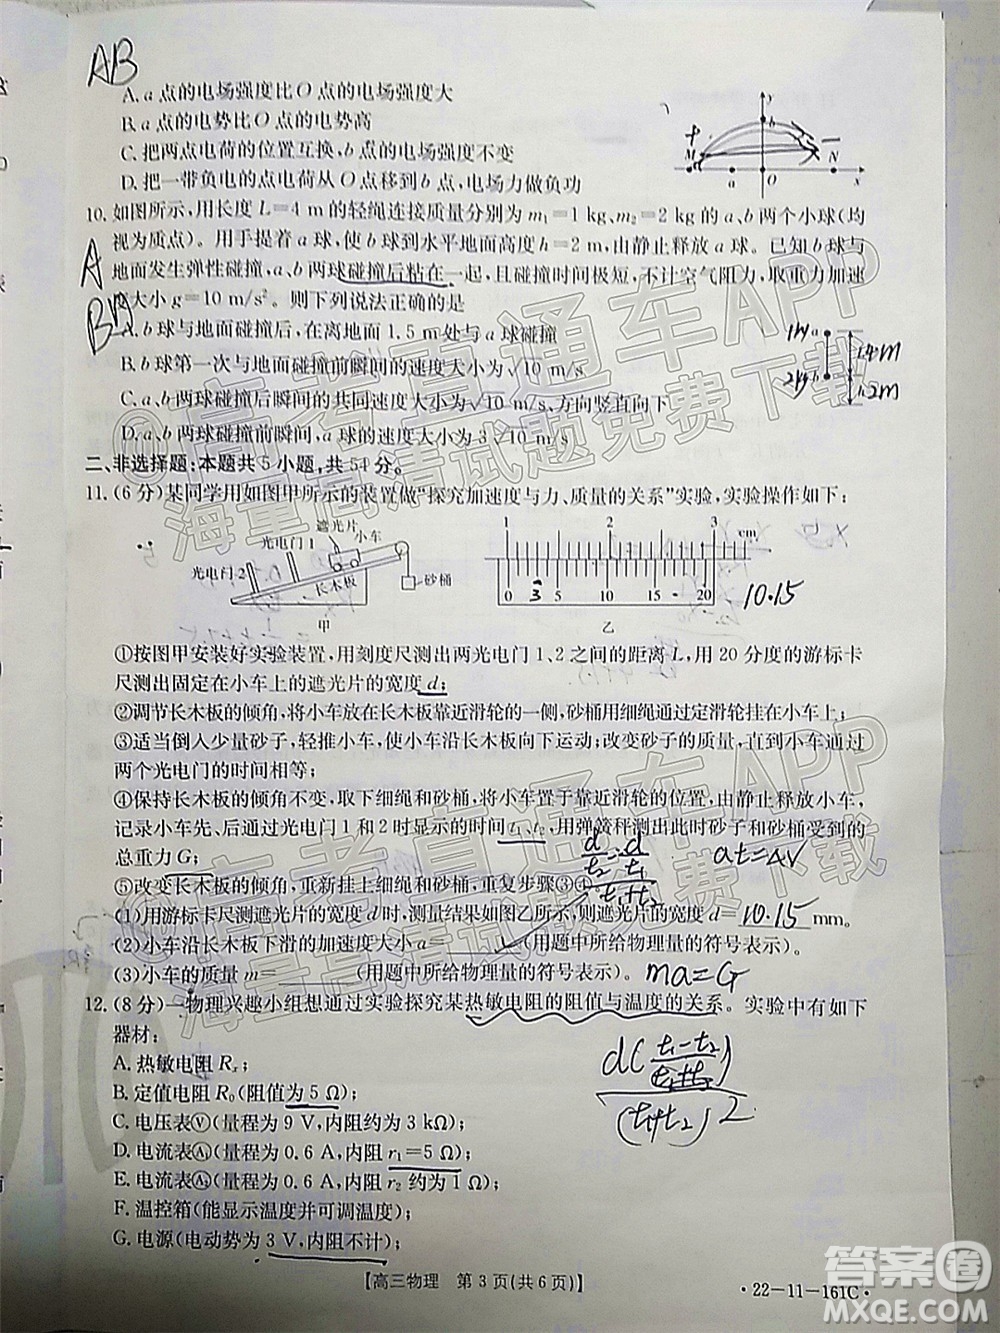 AB
A. a 点的电场强度比 O 点的电场强度大
B. a 点的电势比 O 点的电势高
C. 把两点电荷的位置互换，b 点的电场强度不变
D. 把一带负电的点电荷从 O 点移到 b 点，电场力做负功
y
b
+
M
a
O
N
x
10. 如图所示，用长度 L=4 m 的轻绳连接质量分别为 m₁=1 kg、m₂=2 kg 的 a、b 两个小球(均
视为质点)。用手提着 a 球，使 b 球到水平地面高度 h=2 m，由静止释放 a 球。已知 b 球与
地面发生弹性碰撞，a、b 两球碰撞后粘在一起，且碰撞时间极短，不计空气阻力，取重力加速
度大小 g=10 m/s²。则下列说法正确的是
A
A. b 球与地面碰撞后，在离地面 1.5 m 处与 a 球碰撞
B. b 球第一次与地面碰撞前瞬间的速度大小为√10 m/s
C. a、b 两球碰撞后瞬间的共同速度大小为√10 m/s、方向竖直向下
D. a、b 两球碰撞前瞬间，a 球的速度大小为 3√10 m/s
a
b
h
2m
二、非选择题：本题共 5 小题，共 54 分。
11. (6 分)某同学用如图甲所示的装置做“探究加速度与力、质量的关系”实验，实验操作如下：
遮光片
光电门 1
小车
光电门 2
长木板
砂桶
甲
1 2 3 cm
0 5 10 15 20
乙
10.15
①按图甲安装好实验装置，用刻度尺测出两光电门 1、2 之间的距离 L，用 20 分度的游标卡
尺测出固定在小车上的遮光片的宽度 d；
②调节长木板的倾角，将小车放在长木板靠近滑轮的一侧，砂桶用细绳通过定滑轮挂在小车上；
③适当倒入少量砂子，轻推小车，使小车沿长木板向下运动；改变砂子的质量，直到小车通过
两个光电门的时间相等；
④保持长木板的倾角不变，取下细绳和砂桶，将小车置于靠近滑轮的位置，由静止释放小车，
记录小车先、后通过光电门 1 和 2 时显示的时间 t₁、t₂，用弹簧秤测出此时砂子和砂桶受到的
总重力 G；
d/t₂ - d/t₁
t₁+t₂
at=ΔV
⑤改变长木板的倾角，重新挂上细绳和砂桶，重复步骤③④。
(1)用游标卡尺测遮光片的宽度 d 时，测量结果如图乙所示，则遮光片的宽度 d= 10.15 mm。
(2)小车沿长木板下滑的加速度大小 a=________(用题中所给物理量的符号表示)。
(3)小车的质量 m=________(用题中所给物理量的符号表示)。
ma=G
12. (8 分)一物理兴趣小组想通过实验探究某热敏电阻的阻值与温度的关系。实验中有如下
器材：
A. 热敏电阻 Rₓ；
B. 定值电阻 R₀(阻值为 5 Ω)；
C. 电压表Ⓥ(量程为 9 V，内阻约为 3 kΩ)；
D. 电流表(A₁)(量程为 0.6 A，内阻 r₁=5 Ω)；
E. 电流表(A₂)(量程为 0.6 A，内阻 r₂ 约为 1 Ω)；
F. 温控箱(能显示温度并可调温度)；
G. 电源(电动势为 3 V，内阻不计)；
【高三物理 第 3 页(共 6 页)】
·22-11-161C·
@高考直通车APP
海量高清试题免费下载
@高考直通车APP
海量高清试题免费下载
答案圈
MXQE.COM